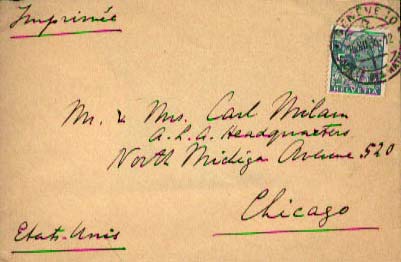 Imprimée
GENÈVE 10
HELVETIA
Mr. & Mrs. Carl Milam
A.L.A. Headquarters
North Michigan Avenue 520
Chicago
Etats-Unis